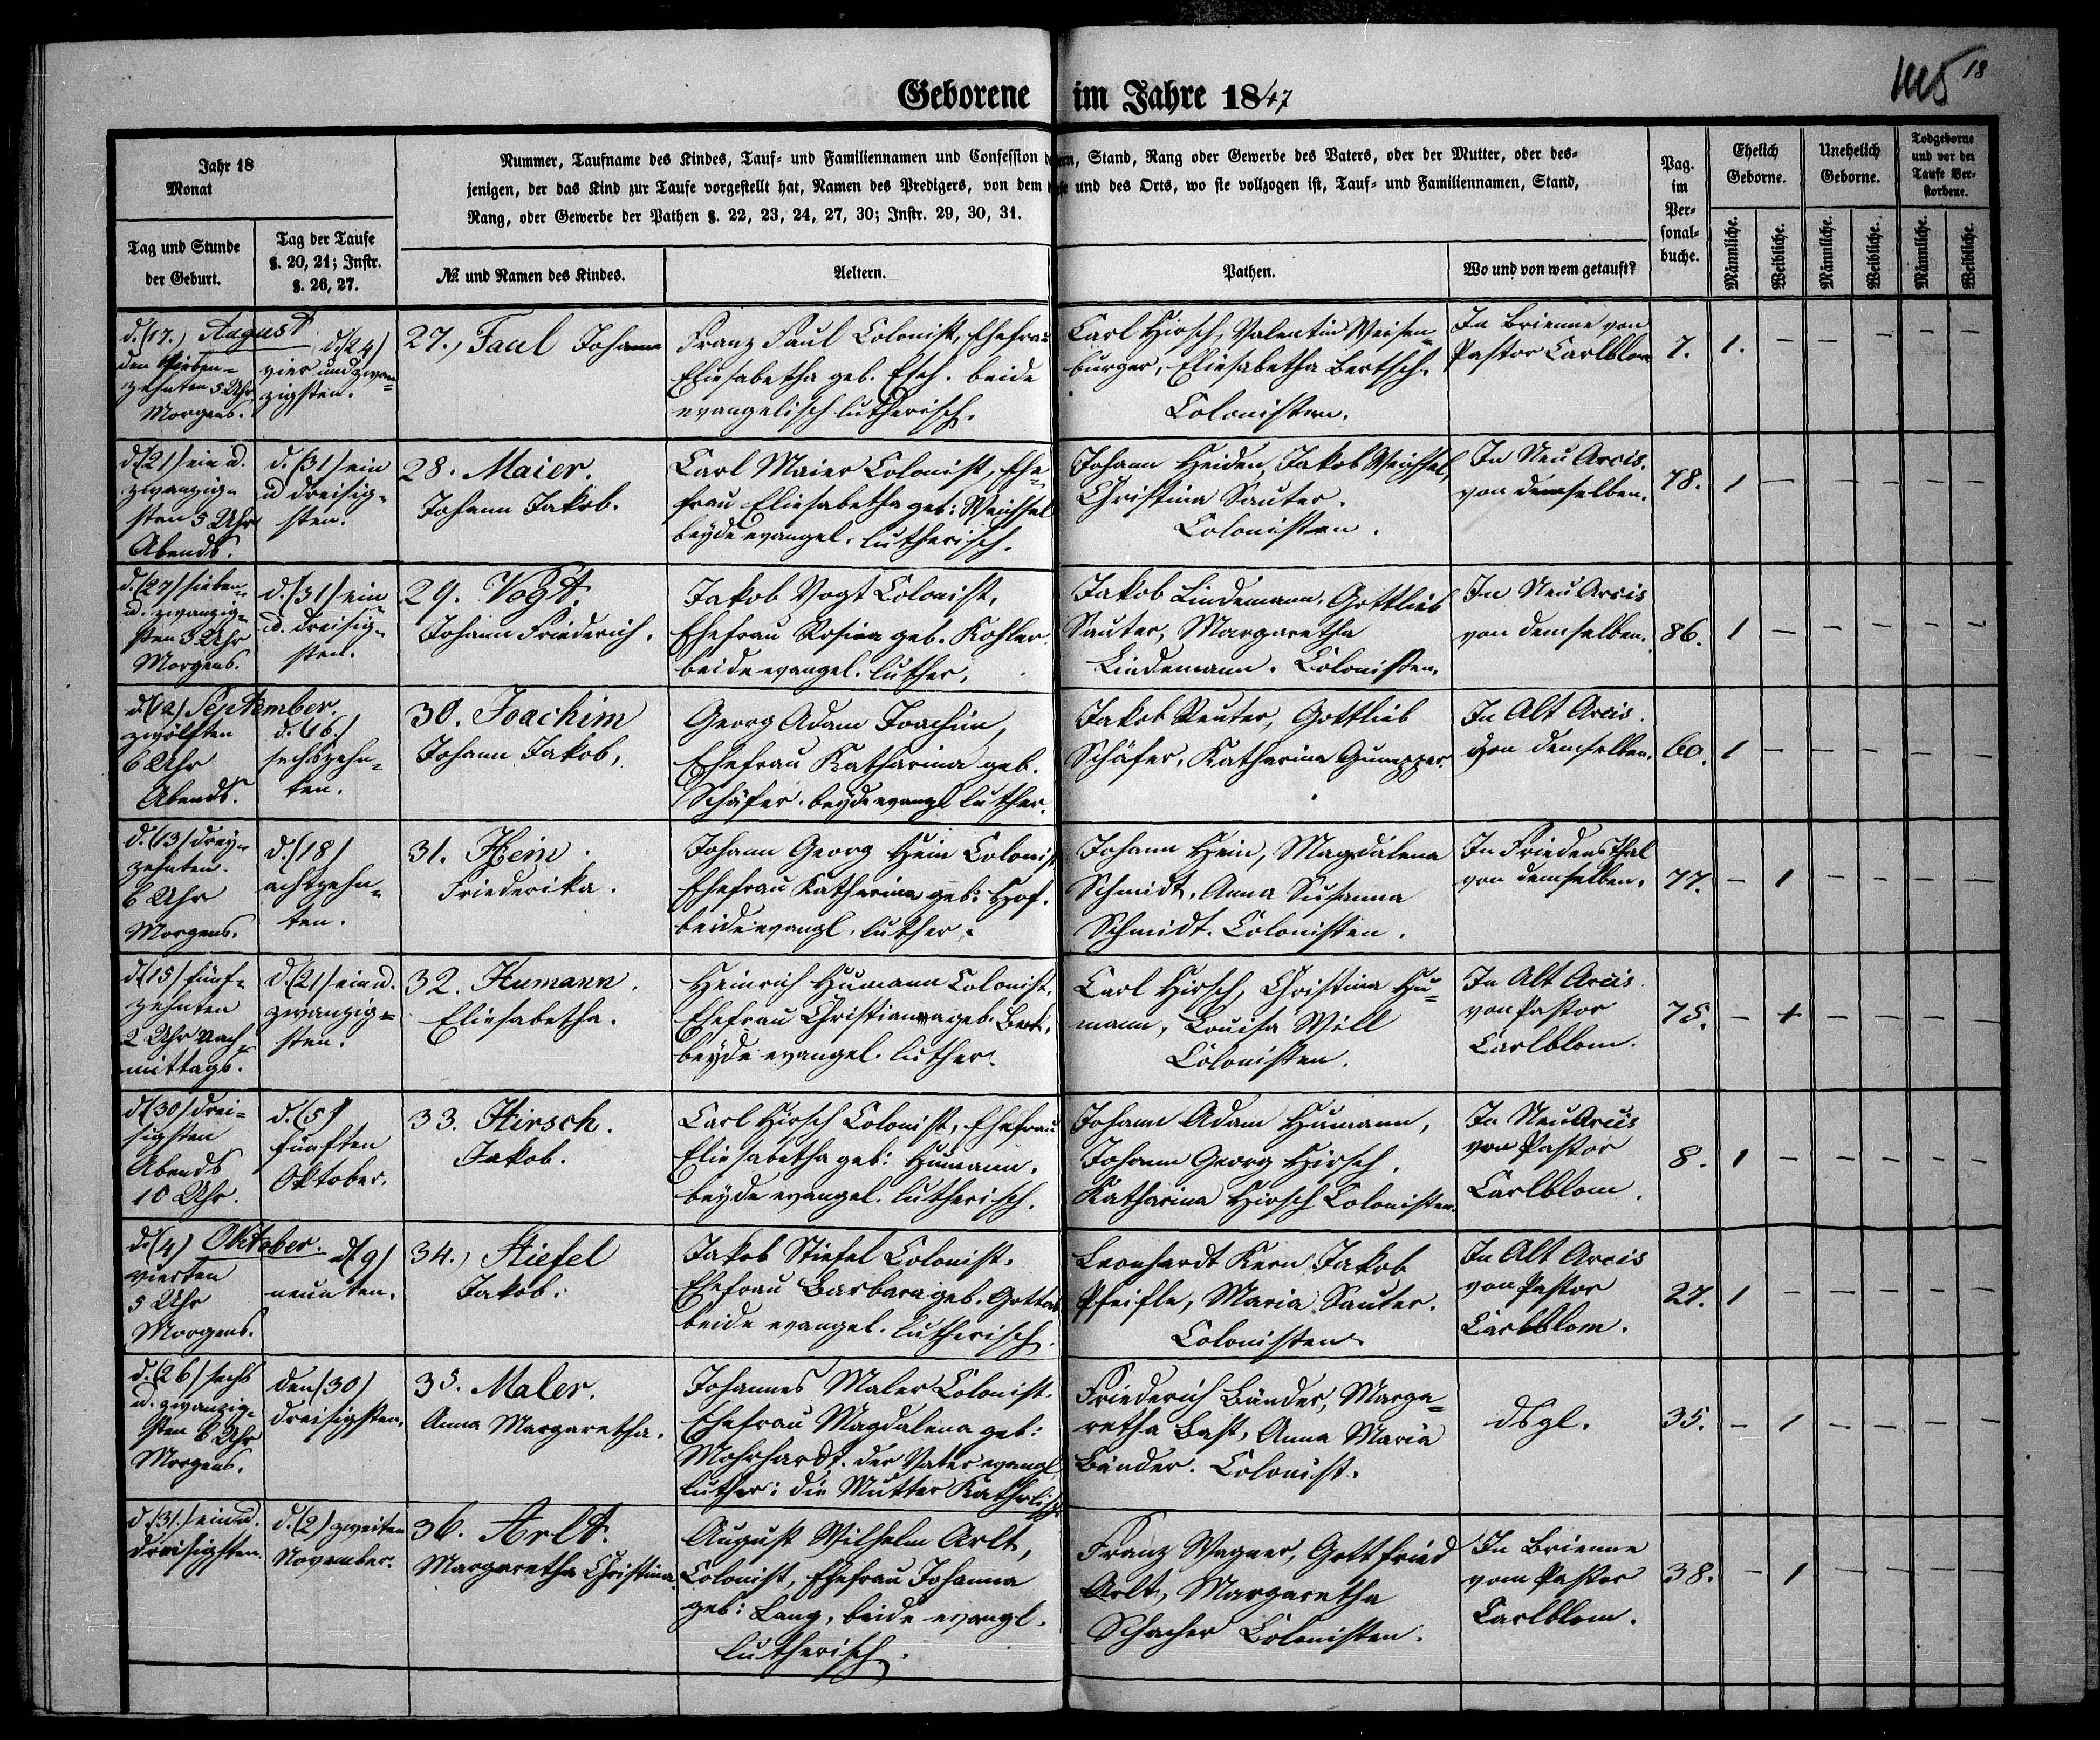 18
1115
Geborene im Jahre 1847
Jahr 18
Monat
Tag und Stunde
der Geburt.
Tag der Taufe
§. 20, 21; Instr.
§. 26, 27.
Nummer, Taufname des Kindes, Tauf= und Familiennamen und Confession, Stand, Rang oder Gewerbe des Vaters, oder der Mutter, oder des=
jenigen, der das Kind zur Taufe vorgestellt hat, Namen des Predigers, von dem und des Orts, wo sie vollzogen ist, Tauf= und Familiennamen, Stand,
Rang, oder Gewerbe der Pathen §. 22, 23, 24, 27, 30; Instr. 29, 30, 31.
№ und Namen des Kindes.
Aeltern.
Pathen.
Wo und von wem getauft?
Pag.
im
Per=
sonal=
buche.
Ehelich
Geborne.
Unehelich
Geborne.
Todgeborne
und vor der
Taufe Ver=
storbene.
Männliche.
Weibliche.
Männliche.
Weibliche.
Männliche.
Weibliche.
August
d. (17.)
den Sieben=
zehnten 5 Uhr
Morgens.
d. (24)
vier und zwan=
zigsten.
27., Faul Johann
Franz Faul Colonist, Ehefrau
Eliesabetha geb. Esch. beide
evangelisch lutherisch.
Carl Hirsch, Valentin Weisen=
burger, Eliesabetha Bertsch.
Colonisten.
In Brienne von
Pastor Carlblom
7. 1. – – – – –
d. (21) ein u.
zwanzig=
sten 5 Uhr
Abends.
d. (31) ein
u dreisig=
sten.
28. Maier.
Johann Jakob.
Carl Maier Colonist, Ehe=
frau Eliesabetha geb: Weichsel
beyde evangel. lutherisch.
Johann Heiden, Jakob Weichsel,
Christina Sauter.
Colonisten.
In Neu Arcis.
von demselben.
78. 1 – – – – –
d. (27) sieben=
u. zwanzig=
sten 3 Uhr
Morgens.
d. (31) ein
u. dreisig=
sten.
29. Vogt.
Johann Friederich.
Jakob Vogt Colonist,
Ehefrau Rosina geb. Kohler.
beide evangel. luther.
Jakob Lindemann, Gottlieb
Sauter, Margaretha
Lindemann. Colonisten.
In Neu Arcis
von demselben.
86. 1 – – – – –
September.
d. (12)
zwölften
6 Uhr
Abends.
d. (16.)
sechszehn=
ten.
30. Joachim
Johann Jakob.
Georg Adam Joachim,
Ehefrau Katharina geb.
Schäfer. beyde evangl luther.
Jakob Reuter, Gottlieb
Schäfer, Katharina Gumpper.
In Alt Arcis.
von demselben.
60. 1 – – – – –
d. (13) drey=
zehnten.
6 Uhr
Morgens.
d. (18)
achtzehn=
ten.
31. Hein.
Friederika.
Johann Georg Hein Colonist
Ehefrau Katharina geb: Hof.
beide evangl. luther.
Johann Hein, Magdalena
Schmidt, Anna Susanna
Schmidt. Colonisten.
In Friedensthal
von demselben.
77. – 1 – – – –
d. (15) fünf=
zehnten
2 Uhr Nach=
mittags.
d. (21) ein u.
zwanzig=
sten.
32. Humann.
Eliesabetha.
Heinrich Humann Colonist.
Ehefrau Christiana geb. Beck.
beyde evangel. luther.
Carl Hirsch, Christina Hu=
mann, Louisa Will
Colonisten.
In Alt Arcis.
von Pastor
Carlblom.
75. – 1 – – – –
d. (30) drei=
sigsten
Abends
10 Uhr.
d. (5)
fünften
Oktober.
33. Hirsch.
Jakob.
Carl Hirsch Colonist, Ehefrau
Eliesabetha geb: Humann.
beyde evangel. lutherisch.
Johann Adam Humann,
Johann Georg Hirsch.
Katharina Hirsch Colonisten.
In Neu Arcis
von Pastor
Carlblom.
8. 1 – – – – –
Oktober.
d. (4)
vierten
5 Uhr
Morgens.
d. (9)
neunten.
34., Stiefel
Jakob.
Jakob Stiefel Colonist.
Ehefrau Barbara geb.
beide evangel. lutherisch.
Leonhardt Kern, Jakob
Pfeifle, Maria Sauter.
Colonisten
In Alt Arcis
von Pastor
Carlblom.
27. 1 – – – – –
d. (26) sechs
u. zwanzig=
sten 6 Uhr
Morgens.
den (30)
dreisigsten.
35. Maler.
Anna Margaretha.
Johannes Maler Colonist.
Ehefrau Magdalena geb:
Mohrhardt. der Vater evangl
luther: die Mutter Katholisch
Friederich Bänder, Marga=
retha Bast, Anna Maria
Bänder. Colonist.
dsgl.
35. – 1 – – – –
d. (31.) ein u.
dreisigsten.
d. (2) zweiten
November.
36. Arlt.
Margaretha Christina.
August Wilhelm Arlt,
Colonist, Ehefrau Johanna
geb: Lang, beide evangl.
lutherisch.
Franz Wagner, Gottfried
Arlt, Margaretha
Schacher Colonisten.
In Brienne
vom Pastor
Carlblom.
38. – 1 – – – –